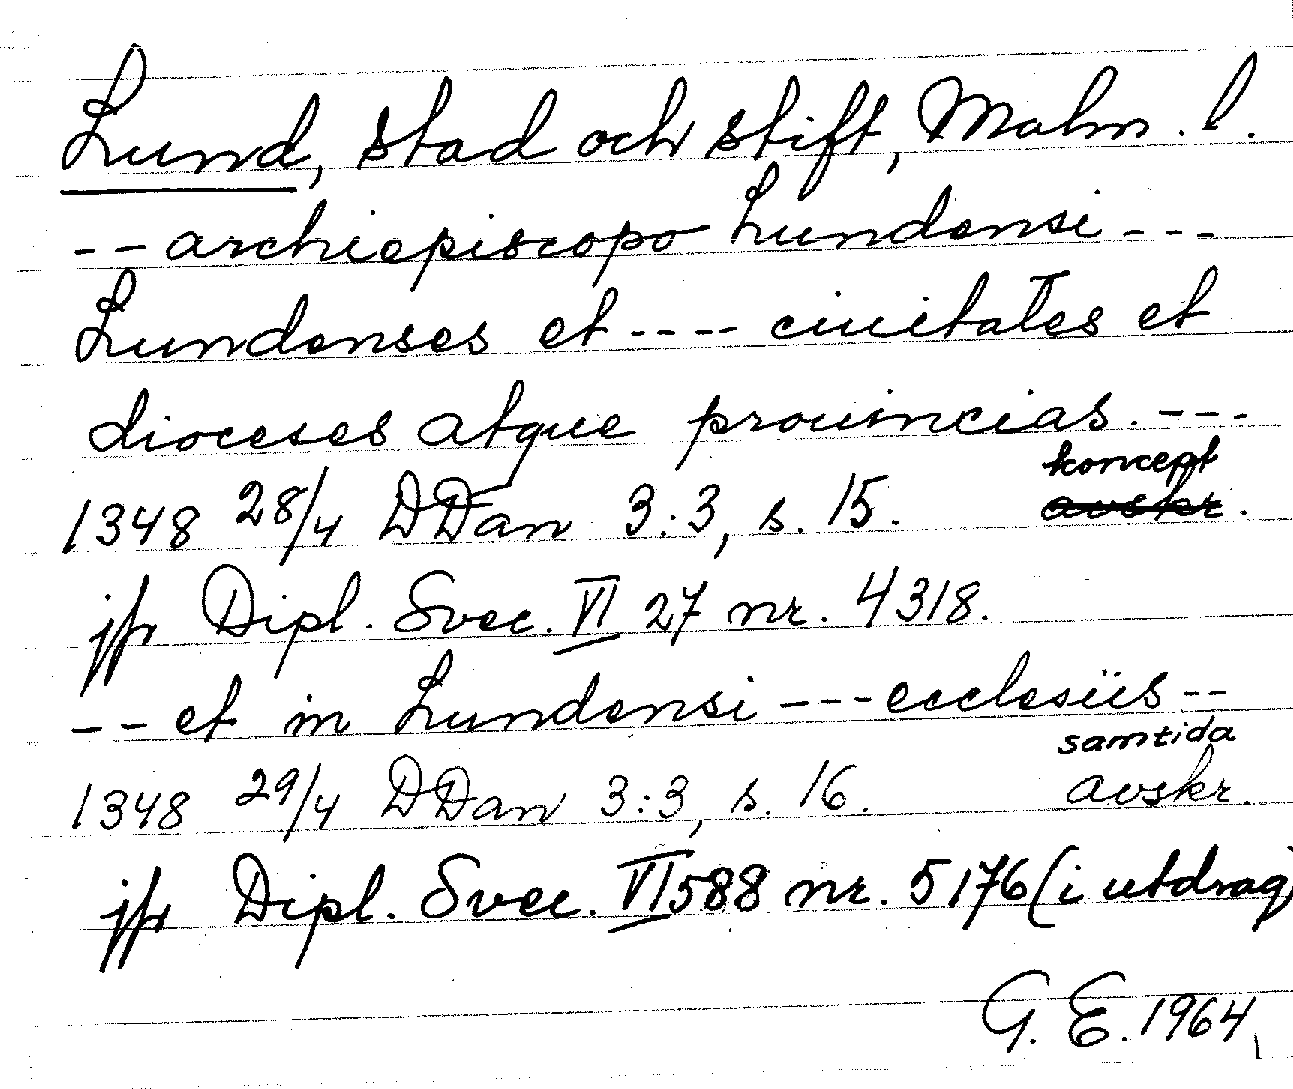 Lund, stad och stift, Malm. l.
-- archiepiscopo Lundensi ---
Lundenses et ---- ciuitates et
dioceses atque prouincias. ---
koncept
1348 28/4 DDan 3:3, s. 15. avskr.
jfr Dipl. Svec. VI 27 nr. 4318.
-- et in Lundensi --- ecclesiis --
samtida
1348 29/4 DDan 3:3, s. 16. avskr.
jfr Dipl. Svec. VI 588 nr. 5176 (i utdrag)
G. E. 1964